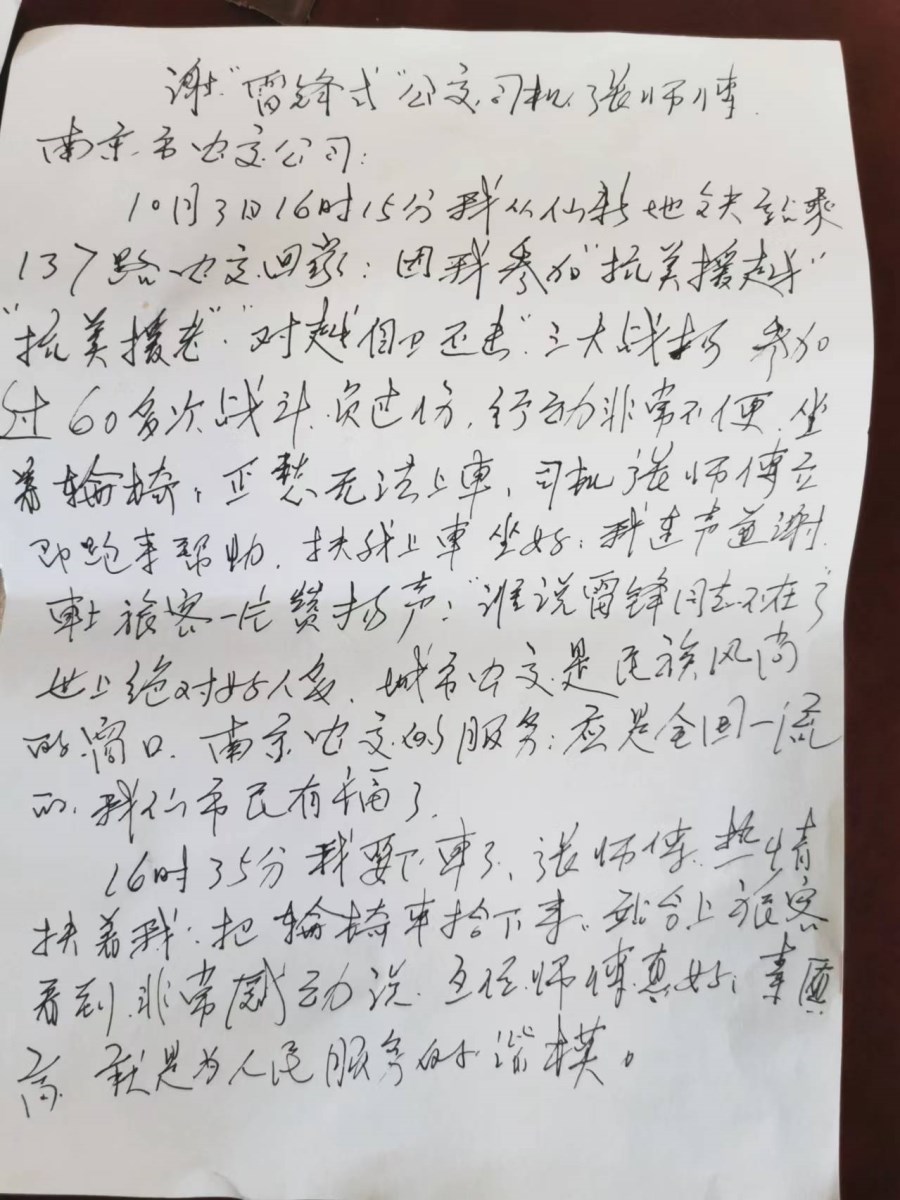 谢“雷锋式”公交司机张师傅
南京市公交公司:
10月3日16时15分我从仙新地铁站乘
137路公交回家;因我参加“抗美援越”
“抗美援老”“对越自卫还击”三大战场 参加
过60多次战斗.负过伤,行动非常不便,坐
着輪椅;正愁无法上車,司机张师傅立
即跑来帮助,扶我上車坐好;我连声道谢.
車上旅客一片赞扬声:“谁说雷锋同志不在了”
世上绝对好人多,城市公交是民族风尚
的窗口,南京公交的服务;应是全国一流
的,我们市民有幸福了.
16时35分我要下車了、张师傅热情
扶着我;把輪椅車抬下来、站台上旅客
看到非常感动说.这位师傅真好;素质
高 就是为人民服务的楷模。